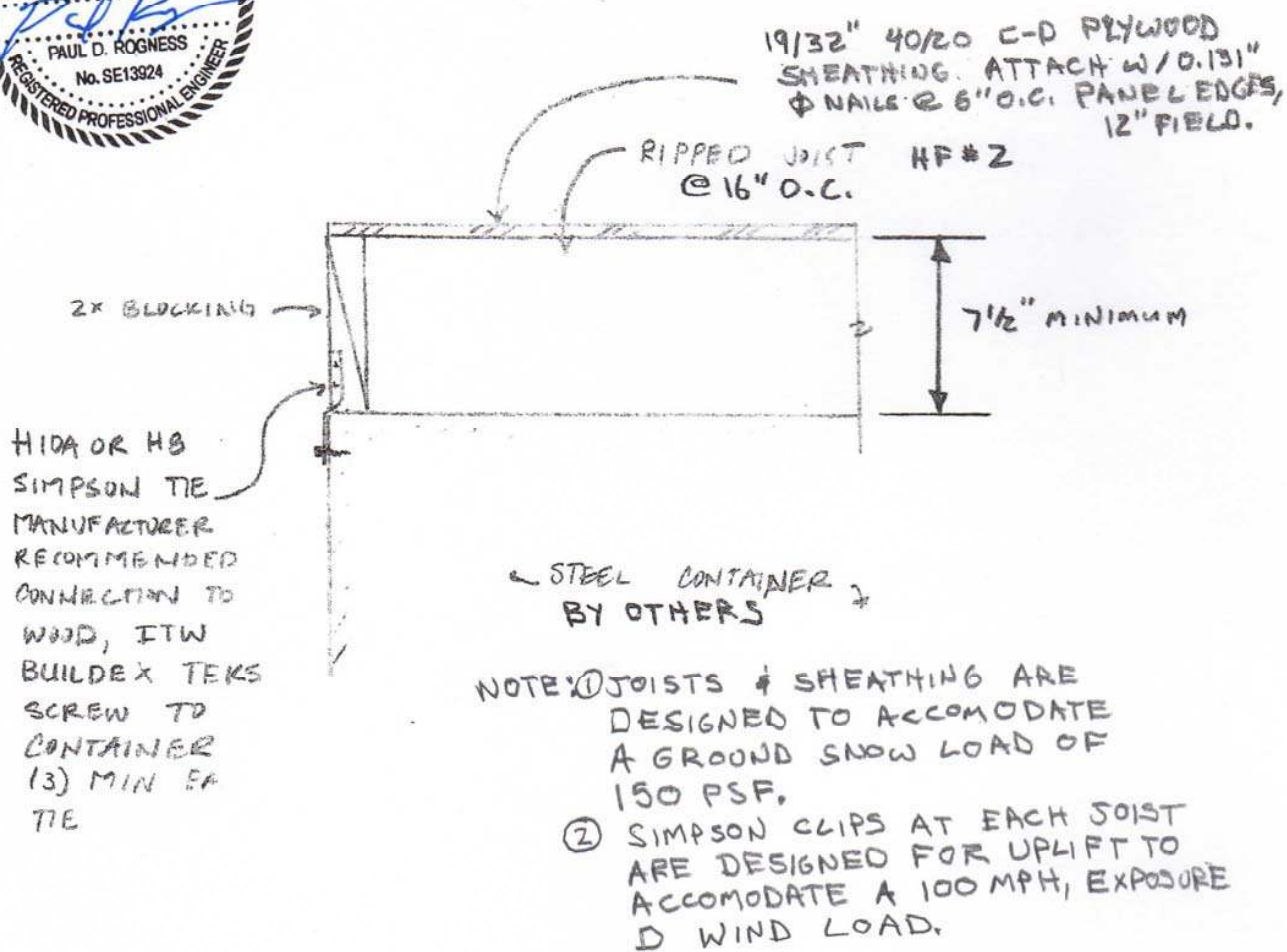 PAUL D. ROGNESS
No. SE13924
REGISTERED PROFESSIONAL ENGINEER
19/32" 40/20 C-D PLYWOOD
SHEATHING. ATTACH W/ 0.131"
Φ NAILS @ 6" O.C. PANEL EDGES,
12" FIELD.
RIPPED JOIST HF #2
@ 16" O.C.
2x BLOCKING
7 1/2" MINIMUM
H10A OR H8
SIMPSON TIE
MANUFACTURER
RECOMMENDED
CONNECTION TO
WOOD, ITW
BUILDEX TEKS
SCREW TO
CONTAINER
(3) MIN EA
TIE
STEEL CONTAINER
BY OTHERS
NOTE: ① JOISTS & SHEATHING ARE
DESIGNED TO ACCOMODATE
A GROUND SNOW LOAD OF
150 PSF.
② SIMPSON CLIPS AT EACH JOIST
ARE DESIGNED FOR UPLIFT TO
ACCOMODATE A 100 MPH, EXPOSURE
D WIND LOAD.